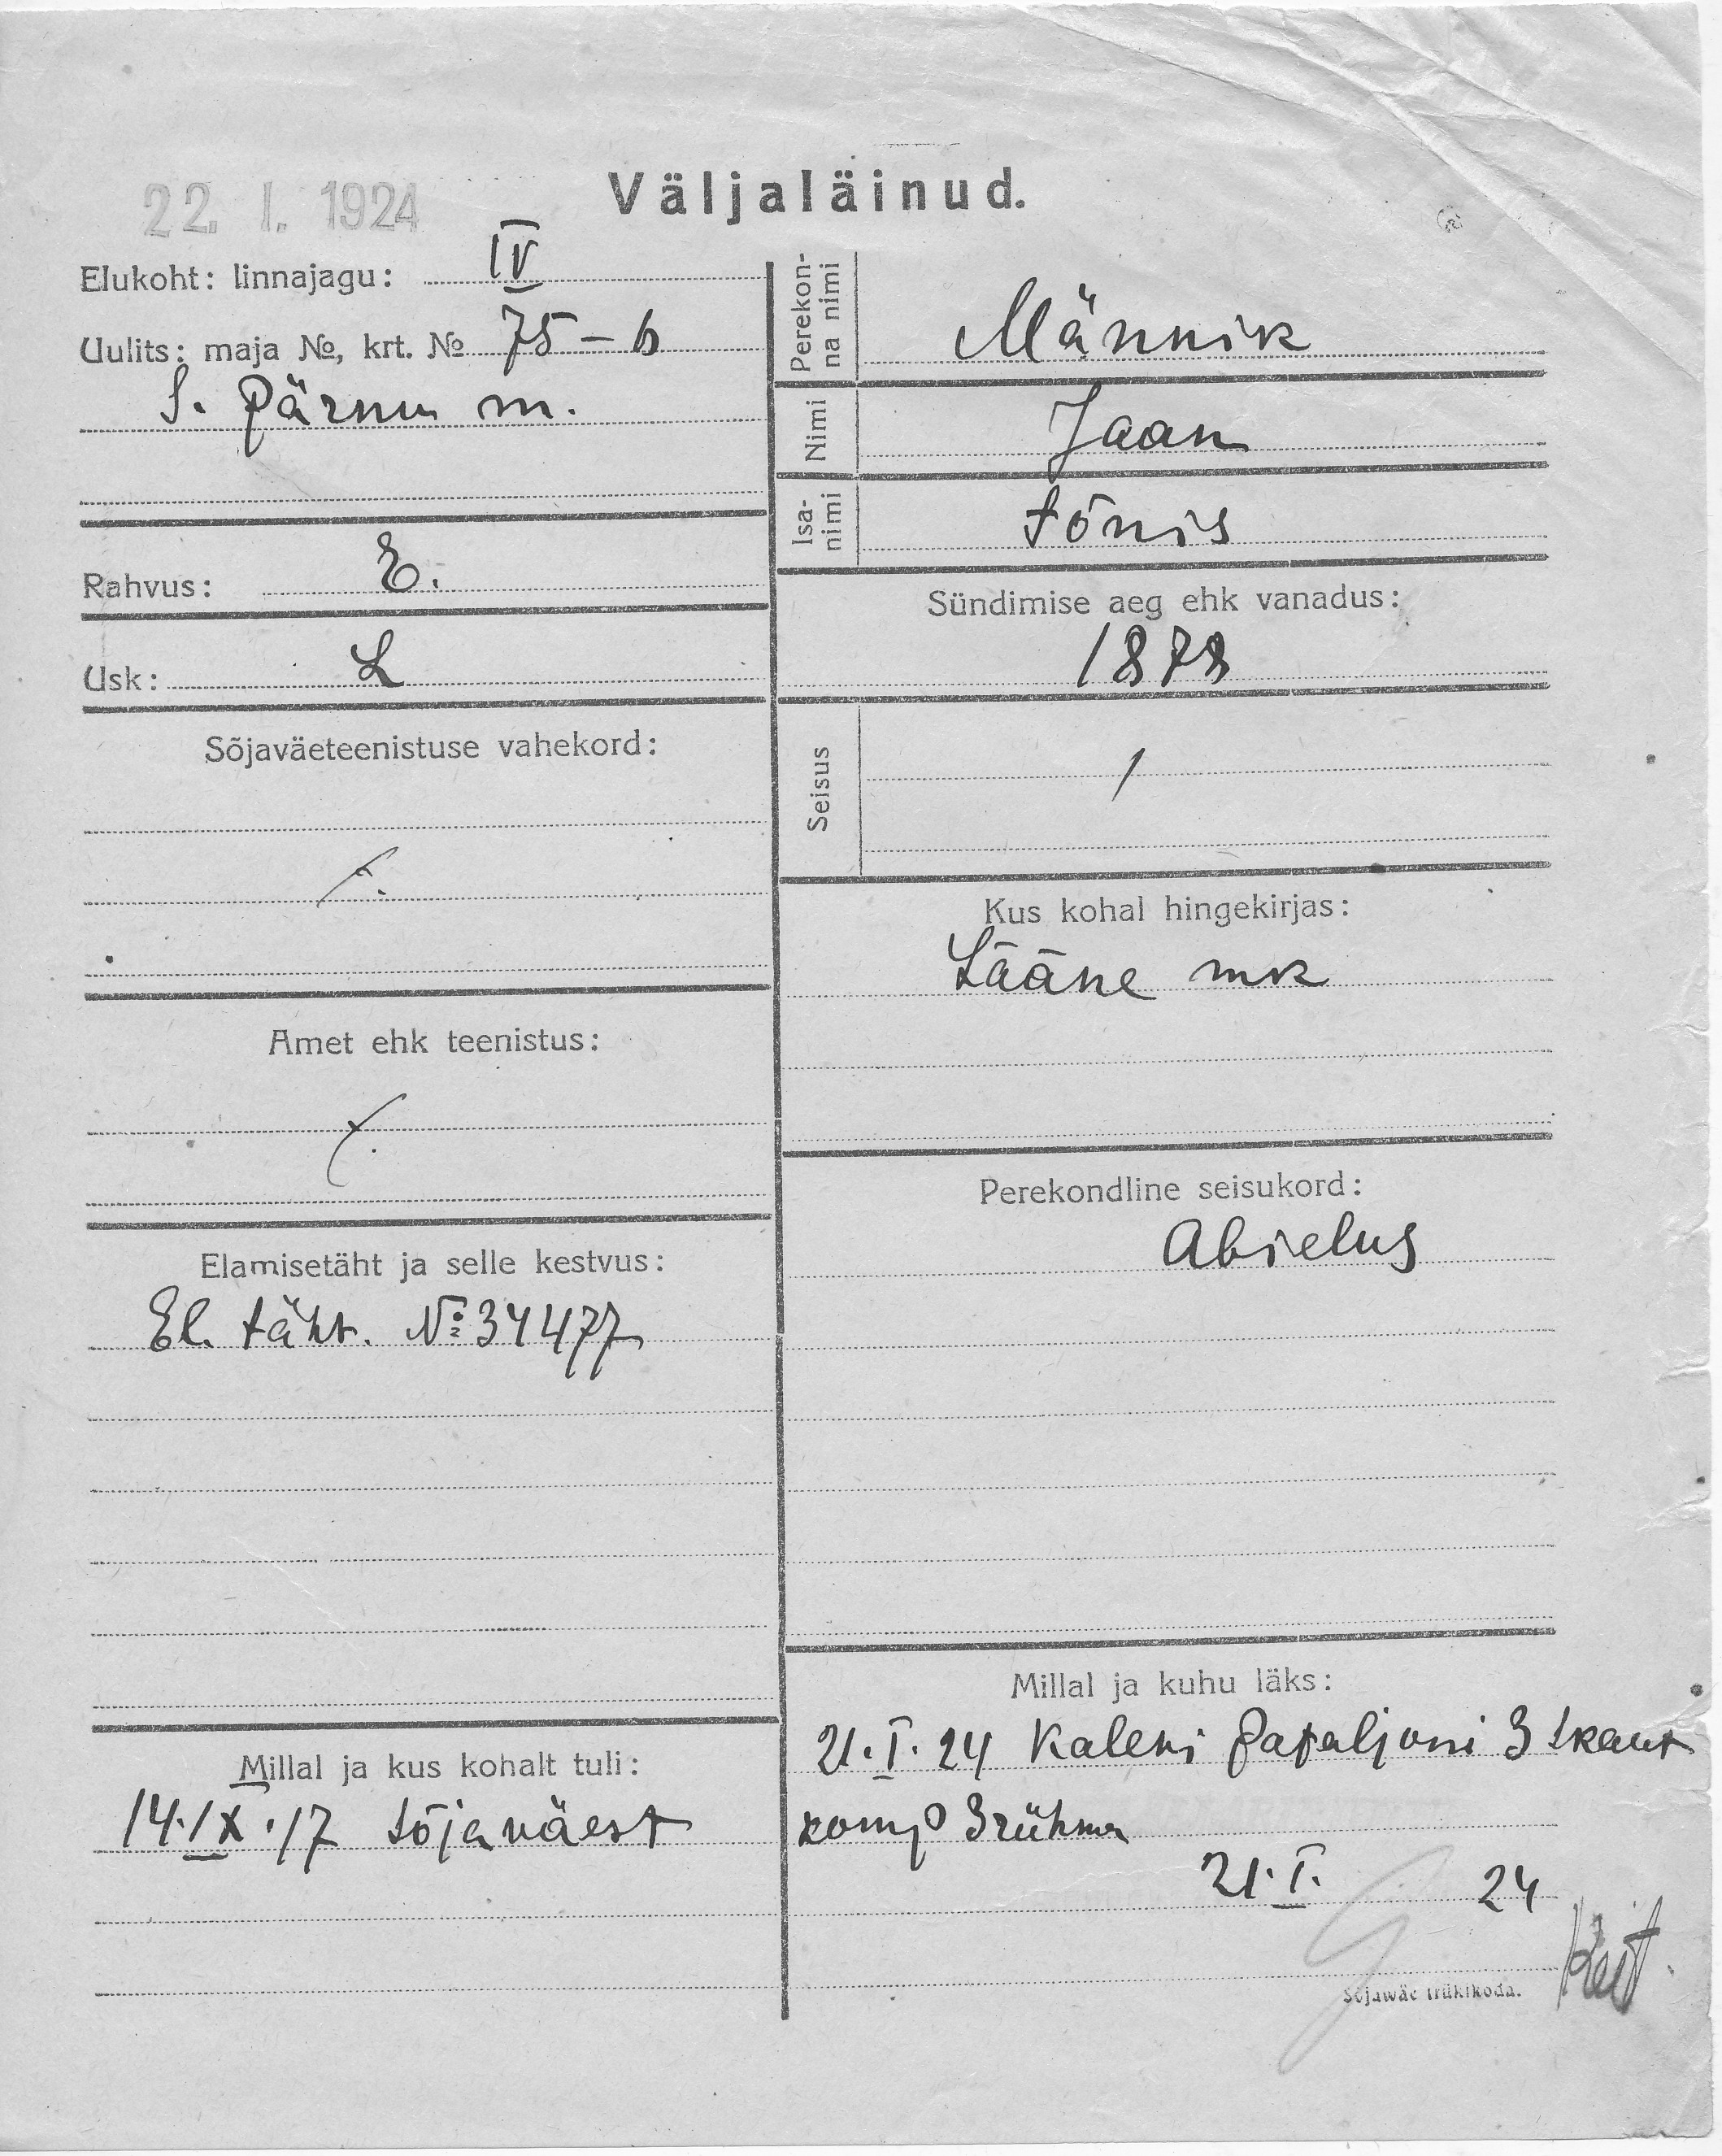 22. I. 1924
Väljaläinud.
Elukoht: linnajagu: IV
Uulits: maja №, krt. № 75 – 6
S. Pärnu m.
Rahvus: E.
Usk: L
Sõjaväeteenistuse vahekord:
Amet ehk teenistus:
Elamisetäht ja selle kestvus:
El. täht. № 34477
Millal ja kus kohalt tuli:
14.IX.17 sõjaväest
Perekon-
na nimi
Männik
Nimi
Jaan
Isa-
nimi
Tõnis
Sündimise aeg ehk vanadus:
1878
Seisus
Kus kohal hingekirjas:
Lääne mk
Perekondline seisukord:
Abielus
Millal ja kuhu läks:
21.I.24 Kalevi pataljoni 3
komp 3 rühma
21.I. 24
Sõjawäe trükikoda.